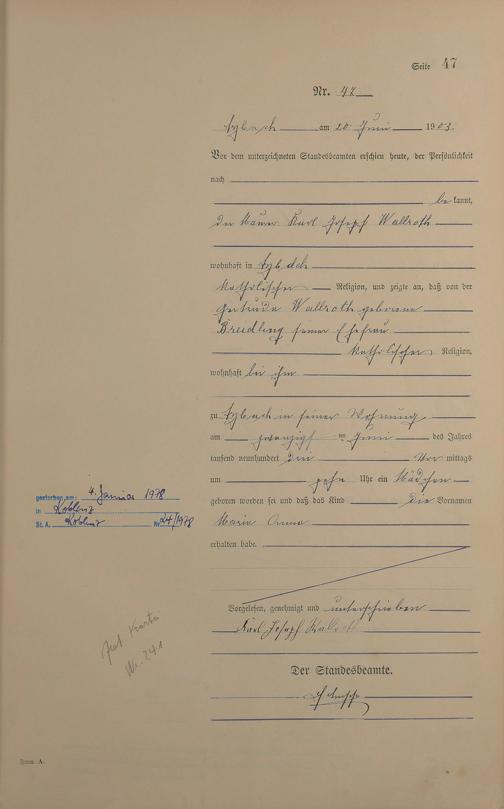 Seite 47
Nr. 47
am 20 Juni 1903.
Vor dem unterzeichneten Standesbeamten erschien heute, der Persönlichkeit
nach
be kannt,
der Maurer Karl Joseph Wallroth
wohnhaft in
katholischer Religion, und zeigte an, daß von der
Gertrude Wallroth geborene
Breidling seiner Ehefrau
katholischer Religion,
wohnhaft bei ihm
zu in seiner Wohnung
am zwanzigsten Juni des Jahres
tausend neunhundert drei Vor mittags
um zehn Uhr ein Mädchen
geboren worden sei und daß das Kind die Vornamen
Maria Anna
erhalten habe.
gestorben am: 4. Januar 1978
in Koblenz
St. A. Koblenz Nr. 24/1978
Vorgelesen, genehmigt und unterschrieben
Karl Joseph Wallroth
Nr. 241
Der Standesbeamte.
Form A.